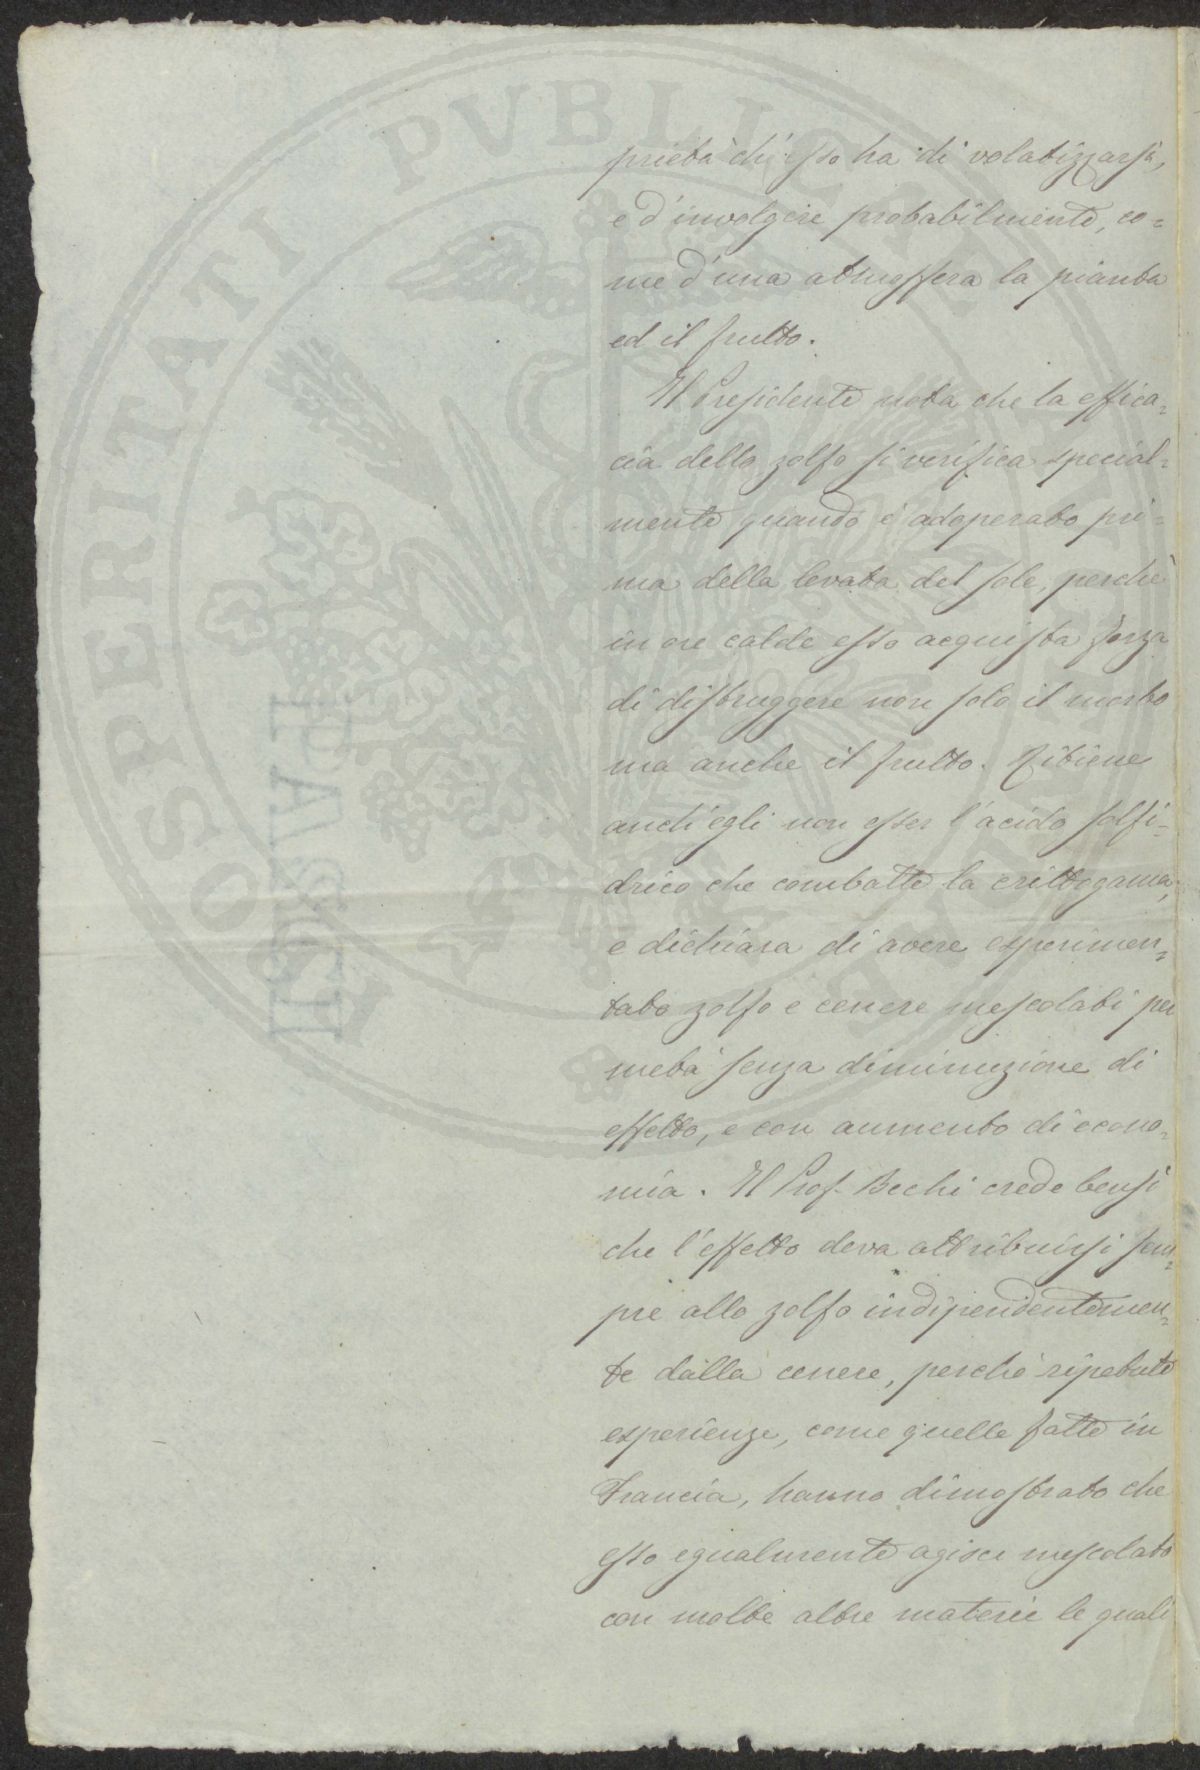 prietà ch'esso ha di volatizzarsi,
e d'involgere probabilmente, co=
me d'una atmosfera la pianta
ed il frutto.
Il Presidente nota che la effica=
cia dello zolfo si verifica special=
mente quando è adoperato pri=
ma della levata del sole, perchè
in ore calde esso acquista forza
di distruggere non solo il morbo
ma anche il frutto. Ritiene
anch'egli non esser l'acido solfi=
drico che combatte la crittogama,
e dichiara di avere esperimen=
tato zolfo e cenere mescolati per
metà senza diminuzione di
effetto, e con aumento di econo=
mia. Il Prof. Bechi crede bensì
che l'effetto deva attribuirsi sem=
pre allo zolfo indipendentemen=
te dalla cenere, perchè ripetute
esperienze, come quelle fatte in
Francia, hanno dimostrato che
esso egualmente agisce mescolato
con molte altre materie le quali
PROSPERITATI PVBLICAE